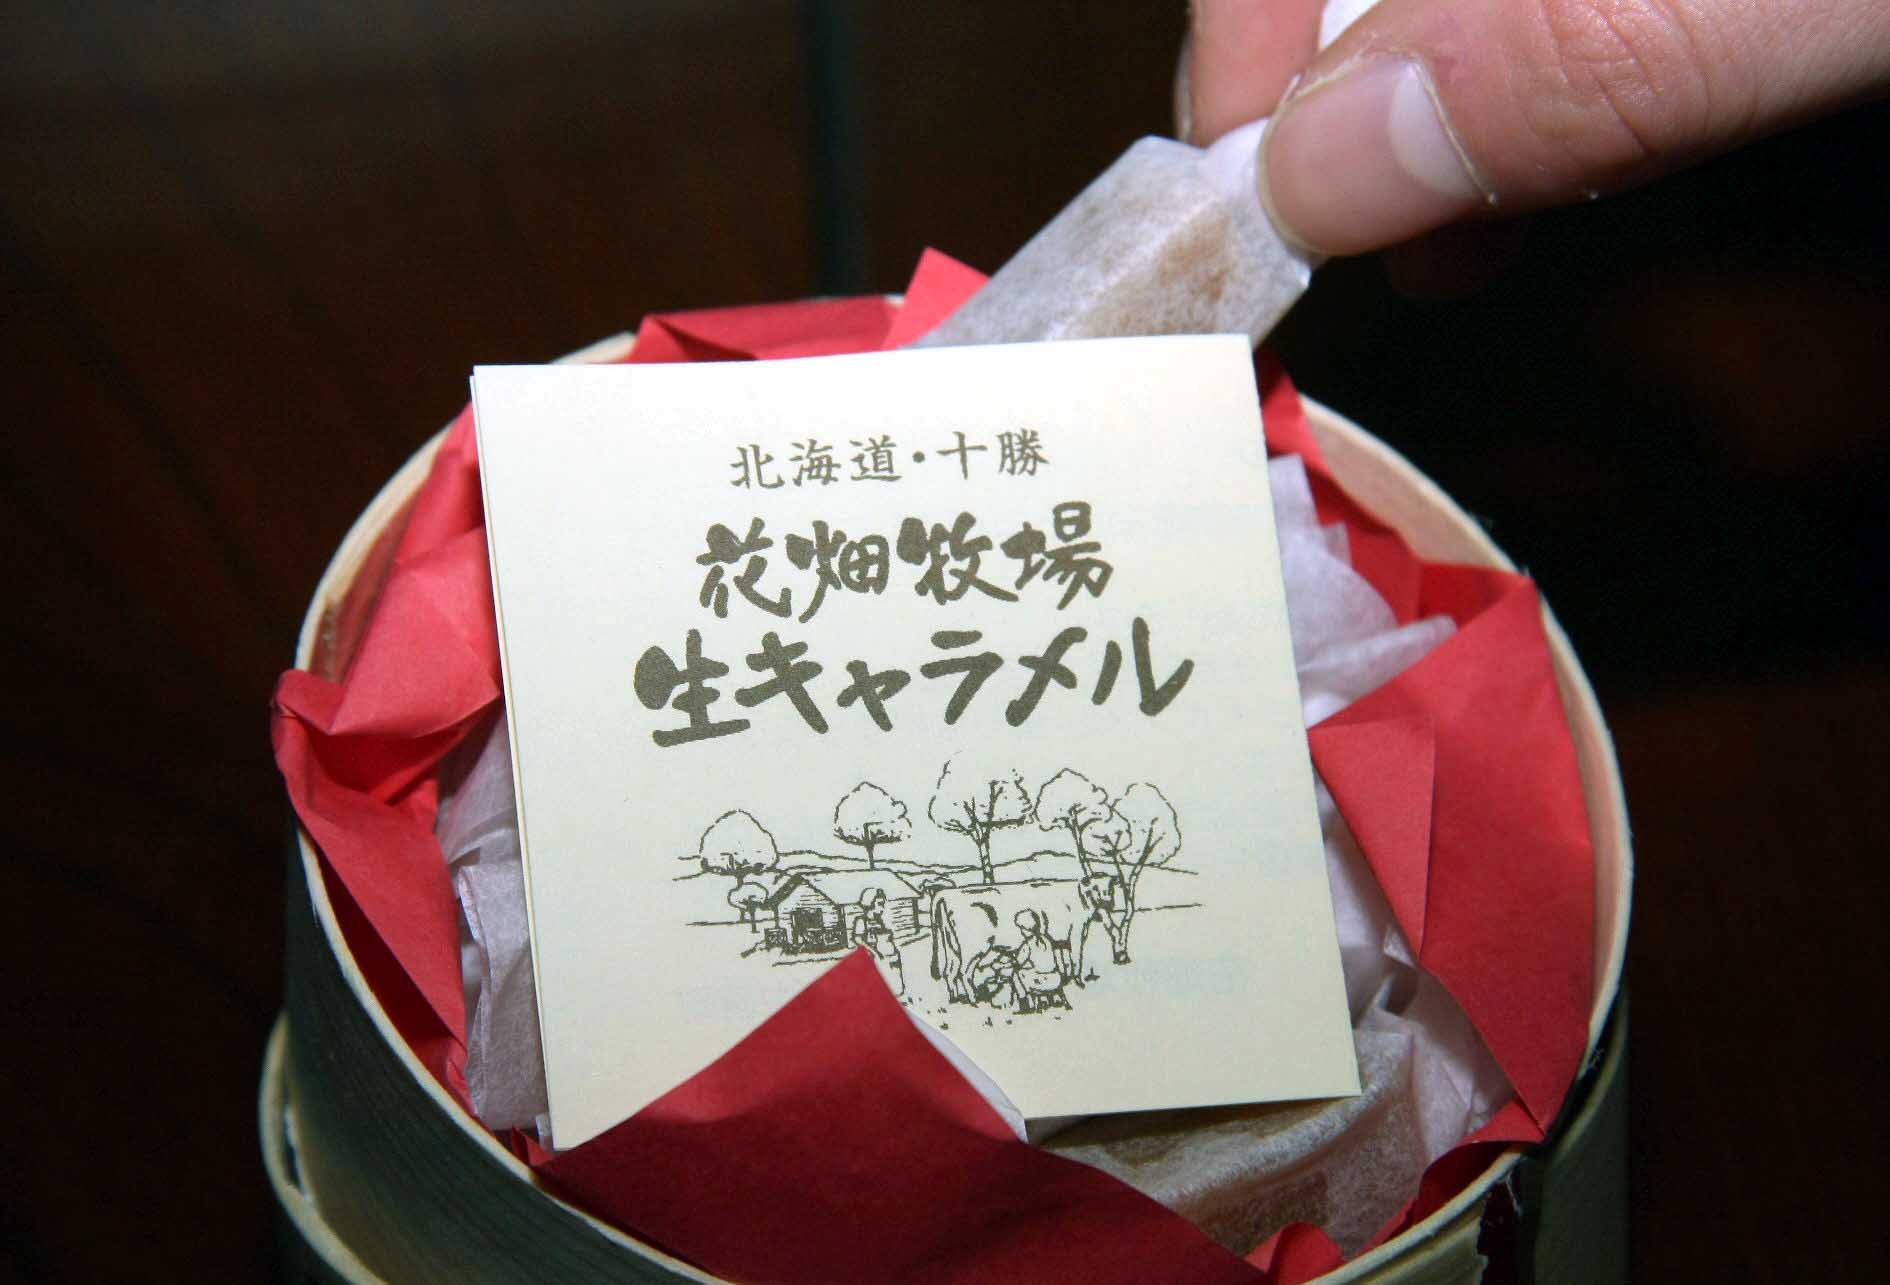 北海道・十勝
花畑牧場
生キャラメル